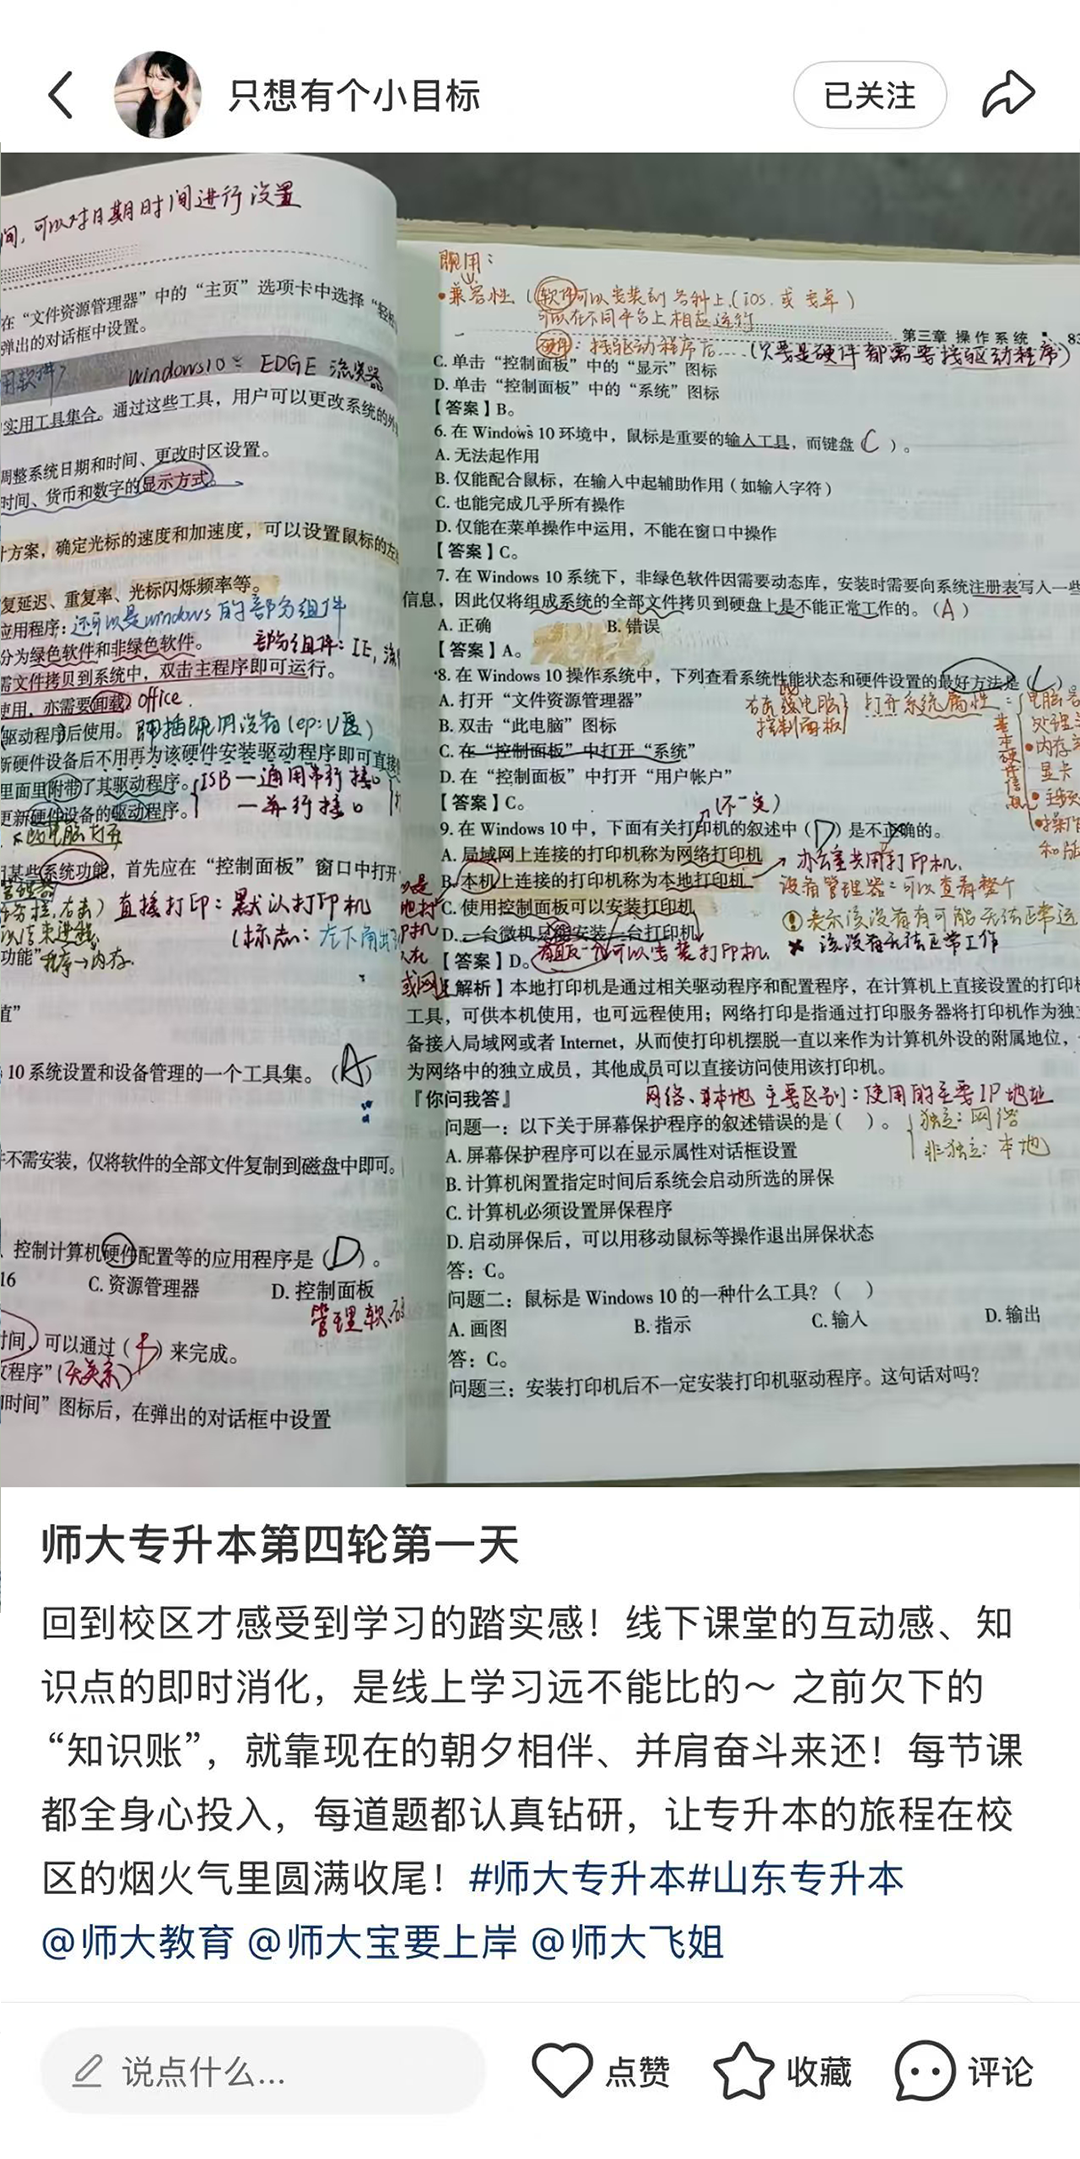 只想有个小目标
已关注
间,可以对日期时间进行设置
在“文件资源管理器”中的“主页”选项卡中选择“轻松
弹出的对话框中设置。
windows10 EDGE 浏览器
实用工具集合。通过这些工具,用户可以更改系统的外
调整系统日期和时间、更改时区设置。
时间、货币和数字的显示方式。
方案,确定光标的速度和加速度,可以设置鼠标的左
复延迟、重复率、光标闪烁频率等。
应用程序:还可以是windows的部分组件
分为绿色软件和非绿色软件。 部分组件:IE,
需文件拷贝到系统中,双击主程序即可运行。
使用,亦需要卸载 office
驱动程序后使用。即插即用设备(ep:U盘)
新硬件设备后不用再为该硬件安装驱动程序即可直接
里面里附带了其驱动程序。 ISB—通用串行接口
更新硬件设备的驱动程序。 —并行接口
某些系统功能,首先应在“控制面板”窗口中打开
直接打印:默认打印机
(标志:左下角出
功能” 程序→内存
值”
10 系统设置和设备管理的一个工具集。(A)
不需安装,仅将软件的全部文件复制到磁盘中即可。
控制计算机硬件配置等的应用程序是(D)。
16 C. 资源管理器 D. 控制面板
管理软
时间,可以通过( )来完成。
程序”(无关系)
时间”图标后,在弹出的对话框中设置
兼容性(软件可以安装到各种上(ios.或安卓)
可以在不同平台上相应运行
第三章 操作系统 83
硬件:找驱动程序后…(只要是硬件都需要找驱动程序)
C. 单击“控制面板”中的“显示”图标
D. 单击“控制面板”中的“系统”图标
【答案】B。
6. 在 Windows 10 环境中,鼠标是重要的输入工具,而键盘( C )。
A. 无法起作用
B. 仅能配合鼠标,在输入中起辅助作用(如输入字符)
C. 也能完成几乎所有操作
D. 仅能在菜单操作中运用,不能在窗口中操作
【答案】C。
7. 在 Windows 10 系统下,非绿色软件因需要动态库,安装时需要向系统注册表写入一些
信息,因此仅将组成系统的全部文件拷贝到硬盘上是不能正常工作的。(A)
A. 正确 B. 错误
【答案】A。
8. 在 Windows 10 操作系统中,下列查看系统性能状态和硬件设置的最好方法是( C )。
A. 打开“文件资源管理器”
B. 双击“此电脑”图标
C. 在“控制面板”中打开“系统”
D. 在“控制面板”中打开“用户帐户”
右击 电脑 打开系统属性
控制面板
基本硬件信息
处理
内存
显卡
【答案】C。
(不一定)
9. 在 Windows 10 中,下面有关打印机的叙述中(D)是不正确的。
A. 局域网上连接的打印机称为网络打印机
B. 本机上连接的打印机称为本地打印机
C. 使用控制面板可以安装打印机
D. 一台微机只能安装一台打印机
办公室共用打印机.
设备管理器:可以查看整个
! 表示该设备有可能无法正常运
× 该设备无法正常工作
【答案】D。 可以安装打印机.
【解析】本地打印机是通过相关驱动程序和配置程序,在计算机上直接设置的打印
工具,可供本机使用,也可远程使用;网络打印是指通过打印服务器将打印机作为独立
备接入局域网或者 Internet,从而使打印机摆脱一直以来作为计算机外设的附属地位,
为网络中的独立成员,其他成员可以直接访问使用该打印机。
网络、本地 主要区别:使用的主要IP地址
独立:网络
非独立:本地
『你问我答』
问题一:以下关于屏幕保护程序的叙述错误的是( )。
A. 屏幕保护程序可以在显示属性对话框设置
B. 计算机闲置指定时间后系统会启动所选的屏保
C. 计算机必须设置屏保程序
D. 启动屏保后,可以用移动鼠标等操作退出屏保状态
答:C。
问题二:鼠标是 Windows 10 的一种什么工具?( )
A. 画图 B. 指示 C. 输入 D. 输出
答:C。
问题三:安装打印机后不一定安装打印机驱动程序。这句话对吗?
师大专升本第四轮第一天
回到校区才感受到学习的踏实感！线下课堂的互动感、知
识点的即时消化，是线上学习远不能比的～ 之前欠下的
“知识账”，就靠现在的朝夕相伴、并肩奋斗来还！每节课
都全身心投入，每道题都认真钻研，让专升本的旅程在校
区的烟火气里圆满收尾！#师大专升本#山东专升本
@师大教育 @师大宝要上岸 @师大飞姐
说点什么...
点赞
收藏
评论